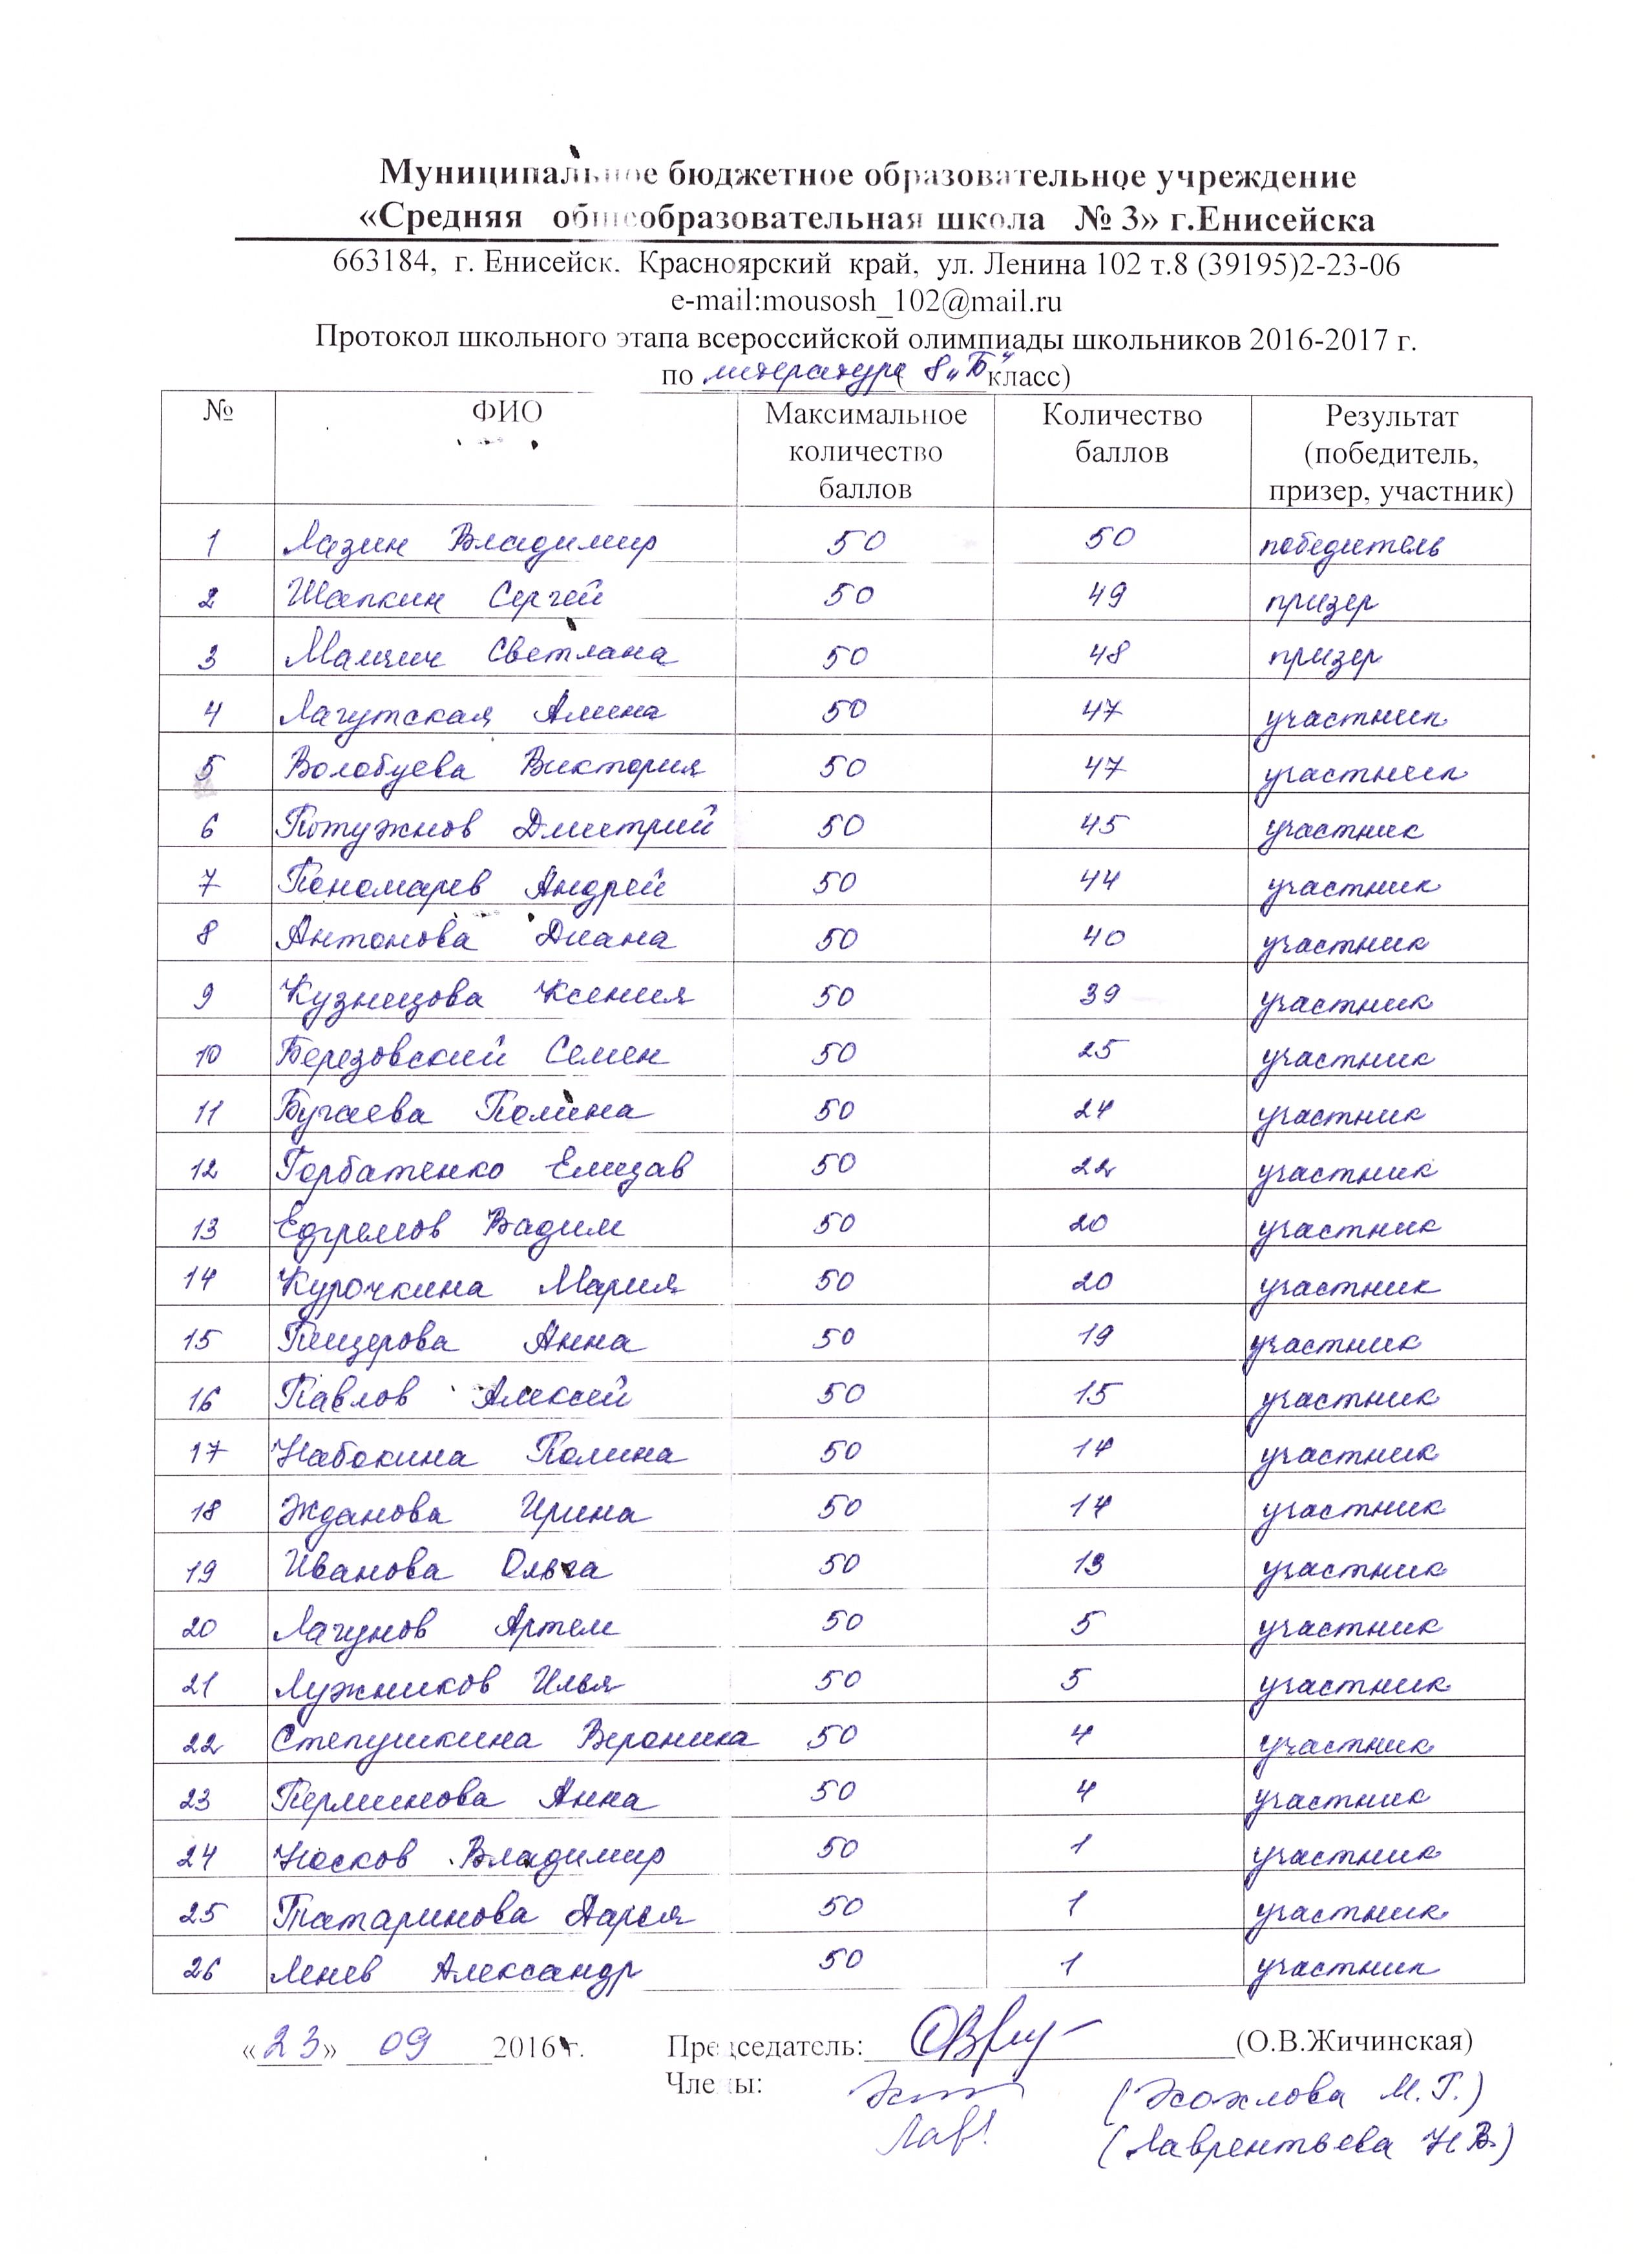 Муниципальное бюджетное образовательное учреждение
«Средняя общеобразовательная школа № 3» г.Енисейска
663184, г. Енисейск. Красноярский край, ул. Ленина 102 т.8 (39195)2-23-06
e-mail:mousosh_102@mail.ru
Протокол школьного этапа всероссийской олимпиады школьников 2016-2017 г.
по литературе (8 „Б" класс)
№ ФИО Максимальное количество баллов Количество баллов Результат (победитель, призер, участник)
1 Лазин Владимир 50 50 победитель
2 Шапкин Сергей 50 49 призер
3 Светлана 50 48 призер
4 Лагутская Алина 50 47 участник
5 Волобуева Виктория 50 47 участник
6 Потужнов Дмитрий 50 45 участник
7 Пономарев Андрей 50 44 участник
8 Антонова Диана 50 40 участник
9 Кузнецова Ксения 50 39 участник
10 Березовский Семен 50 25 участник
11 Бугаева Полина 50 24 участник
12 Горбатенко Елизав 50 22 участник
13 Вадим 50 20 участник
14 Курочкина Мария 50 20 участник
15 Пещерова Анна 50 19 участник
16 Павлов Алексей 50 15 участник
17 Набокина Полина 50 14 участник
18 Жданова Ирина 50 14 участник
19 Иванова Ольга 50 13 участник
20 Лагунов Артем 50 5 участник
21 Лужников Илья 50 5 участник
22 Степушкина Вероника 50 4 участник
23 Перминова Анна 50 4 участник
24 Носков Владимир 50 1 участник
25 Татаринова Дарья 50 1 участник
26 Ленев Александр 50 1 участник
«23» 09 2016 г. Председатель: (О.В.Жичинская)
Члены: (Хохлова М.Г.)
(Лаврентьева Н.В.)